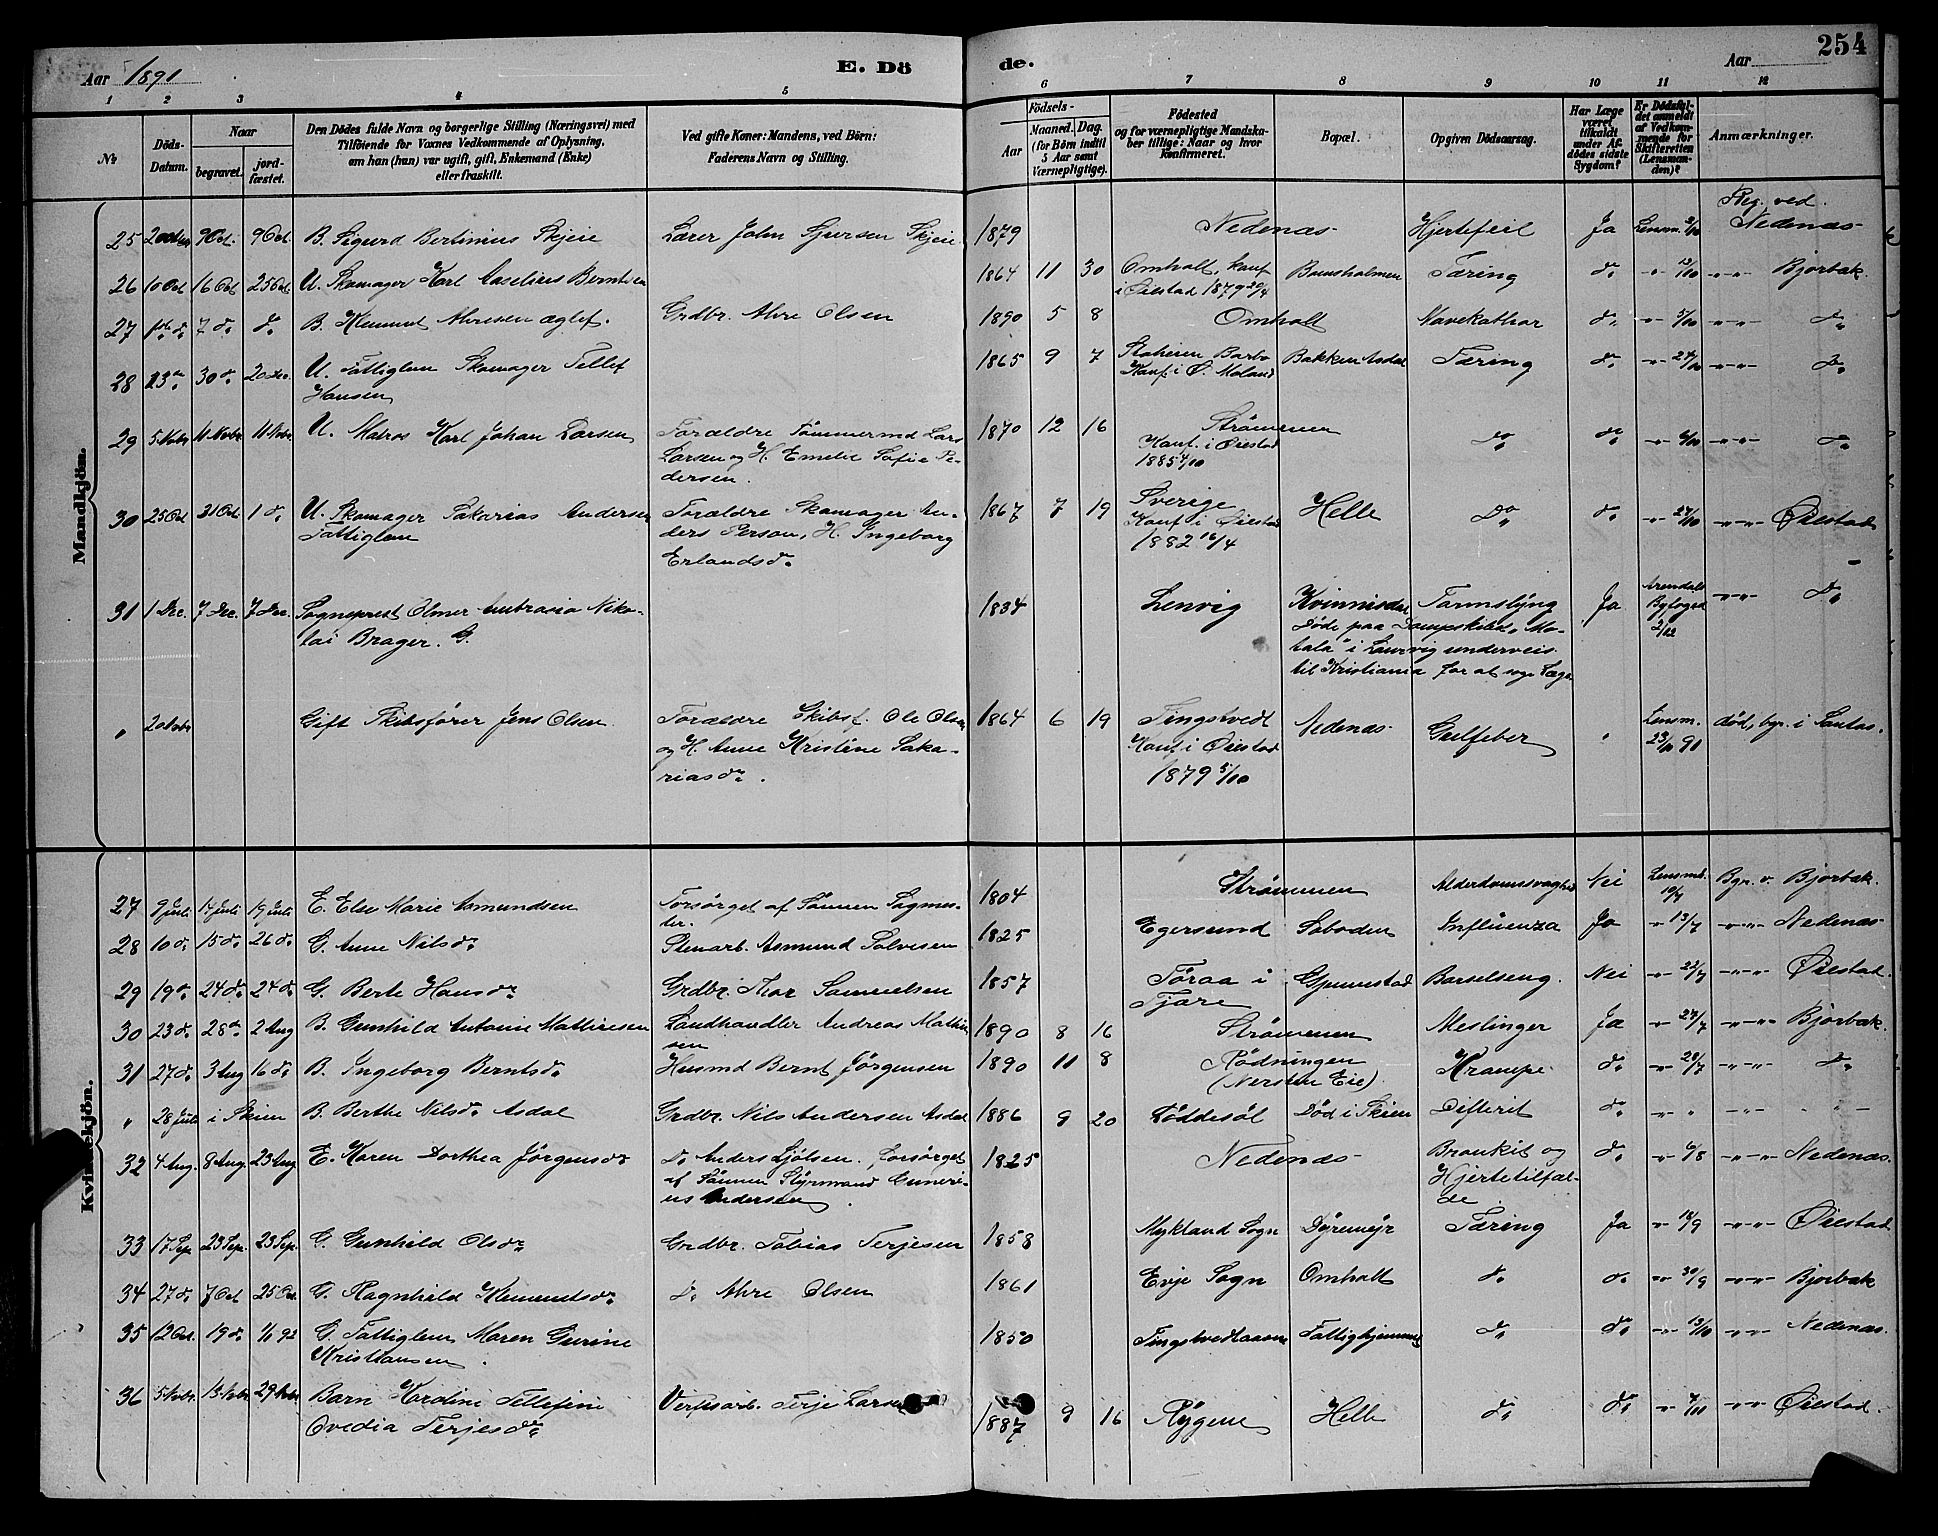 Aar 1891
E. Dö
de.
Aar
254
1 2 3 4 5 6 7 8 9 10 11 12
No
Döds-
Datum.
Naar
begravet.
jord-
fæstet.
Den Dödes fulde Navn og borgerlige Stilling (Næringsvei) med
Tilföiende for Voxnes Vedkommende af Oplysning,
om han (hun) var ugift, gift, Enkemand (Enke)
eller fraskilt.
Ved gifte Koner: Mandens, ved Börn:
Faderens Navn og Stilling.
Födsels-
Aar
Maaned. Dag.
(for Börn indtil
5 Aar samt
Værnepligtige).
Födested
og for værnepligtige Mandska-
ber tillige: Naar og hvor
konfirmeret.
Bopæl.
Opgiven Dödsaarsag.
Har Læge
været
tilkaldt
under Af-
dödes sidste
Sygdom?
Er Dödsfal-
det anmeldt
af Vedkom-
mende for
Skifteretten
(Lensman-
den)?
Anmærkninger.
Mandkjön.
Beg. ved
25 9 Oct. 9 Oct B. Sigurd Bertinius Skjeie Lærer John Sjursen Skjeie 1879 Nedenæs Hjertefeil Ja Lensm. Nedenæs
26 10 Oct 16 Oct 25 Oct. U. Skomager Karl Aaselius Berntsen 1864 11 30 Omholt, konf. Tæring do 13/10 " " Bjorbæk.
i Øiestad 1879 20/4
27 7 do do B. Klemmet Ahresen ægtef. Grdbr. Ahre Olsen 1890 5 8 Omholt do 5/10 " " do
28 23 do 30 do 20 Dec. U. Fattiglem Skomager Tellef 1865 9 7 Barbo Bakken Asdal Tæring do 24/10 " " do
Hansen Konf. i Ø. Moland
29 5 Novbr 11 Novbr 11 Novbr U. Matros Karl Johan Larsen Forældre Tømmermd Lars 1870 12 16 Strømmen do do " " do
Larsen og H. Emelie Sofie Pe- Konf. i Øiestad
dersen. 1885 4/10
30 25 Oct 31 Oct 1 do U. Skomager Sakarias Andersen Forældre Skomager An- 1867 7 19 Sverige Helle do do 27/10 " " Øiestad
Fattiglem ders Person, H. Ingeborg Konf. i Øiestad
Erlandsdr. 1882 16/4
31 1 Dec. 7 Dec. 7 Dec. Sogneprest Olmer Ambrosio Niko- 1834 Lenvig Kvinnisdal Ja Arendals " " do
lai Brager. G. Døde paa Dampskibet "Mo- Byfoged
tala" i Laurvig underveis 2/12
til Kristiania for at søge Læge
" Gift Skibsfører Jens Olsen. Forældre Skibsf. Ole Olsen 1864 6 19 Tingstvedt Nedenæs Gulfeber " Lensm. død, bgr. i Santos.
og H. Anne Kristine Saka- Konf. i Øiestad 23/11 91
riasdr. 1879 5/10
Kvindekjön.
27 9 Juli 14 Juli 19 Juli E. Else Marie Asmundsen Forsørget af Sønnen Sagmes- 1804 Strømmen Alderdomssvaghed Nei Lensmd. Bgr. v. Bjorbæk.
ter.
28 10 do 15 do 26 do G. Anne Nilsdr Stenarb. Asmund Salvesen 1825 Egersund Seboden Influenza Ja 13/7 " " Nedenæs
29 19 do 24 do 24 do G. Berte Hansdr Grdbr. Thor Samuelsen 1857 Føraa i Gjennestad Barselseng. Nei 22/7 " " Øiestad.
Fjære
30 23 do 28 do 2 Aug B. Gunhild Antonie Mathiesen Landhandler Andreas Mathie 1890 8 16 Strømmen Meslinger Ja 27/7 " " Bjorbæk.
sen
31 27 do 3 Aug 16 do B. Ingeborg Berntsdr Husmd Bernt Jörgensen 1890 11 8 Rødningen Krampe do 28/7 " " do
(Nersten Eie)
" 28 Juli i Skien B. Berthe Nilsdr Asdal Grdbr. Nils Andersen Asdal 1886 9 20 Løddesøl Død i Skien Difterit do " " " "
32 4 Aug. 8 Aug. 23 Aug E. Karen Dorthea Jörgensdr do Anders Ljölsen. Forsørget 1825 Nedenæs Bronkit og do 6/8 " " Nedenæs.
af Sønnen Styrmand Guneri- Hjertetilfæl-
us Andersen de
33 17 Sep. 23 Sep. 23 Sep. G. Gunhild Olsdr Grdbr. Tobias Terjesen 1858 Mykland Sogn Dyremyr Tæring Ja 18/9 " " Øiestad
34 27 do 7 Oct 25 Oct. G. Ragnhild Klemmetsdr do Ahre Olsen 1861 Evje Sogn Omholt do do 30/9 " " Bjorbæk
35 12 Oct. 19 do 1/1 92 G. Fattiglem Maren Gurine 1850 Tingstvedtaasen Fattighjemmet do do 13/10 " " Nedenæs.
Kristiansen.
36 5 Novbr. 13 Novbr 29 Novbr Barn Kordine Tellefine Verftsarb. Terje Larsen 1887 9 16 Rygene Helle do do 7/11 " " Øiestad.
Ovedia Terjesdr.